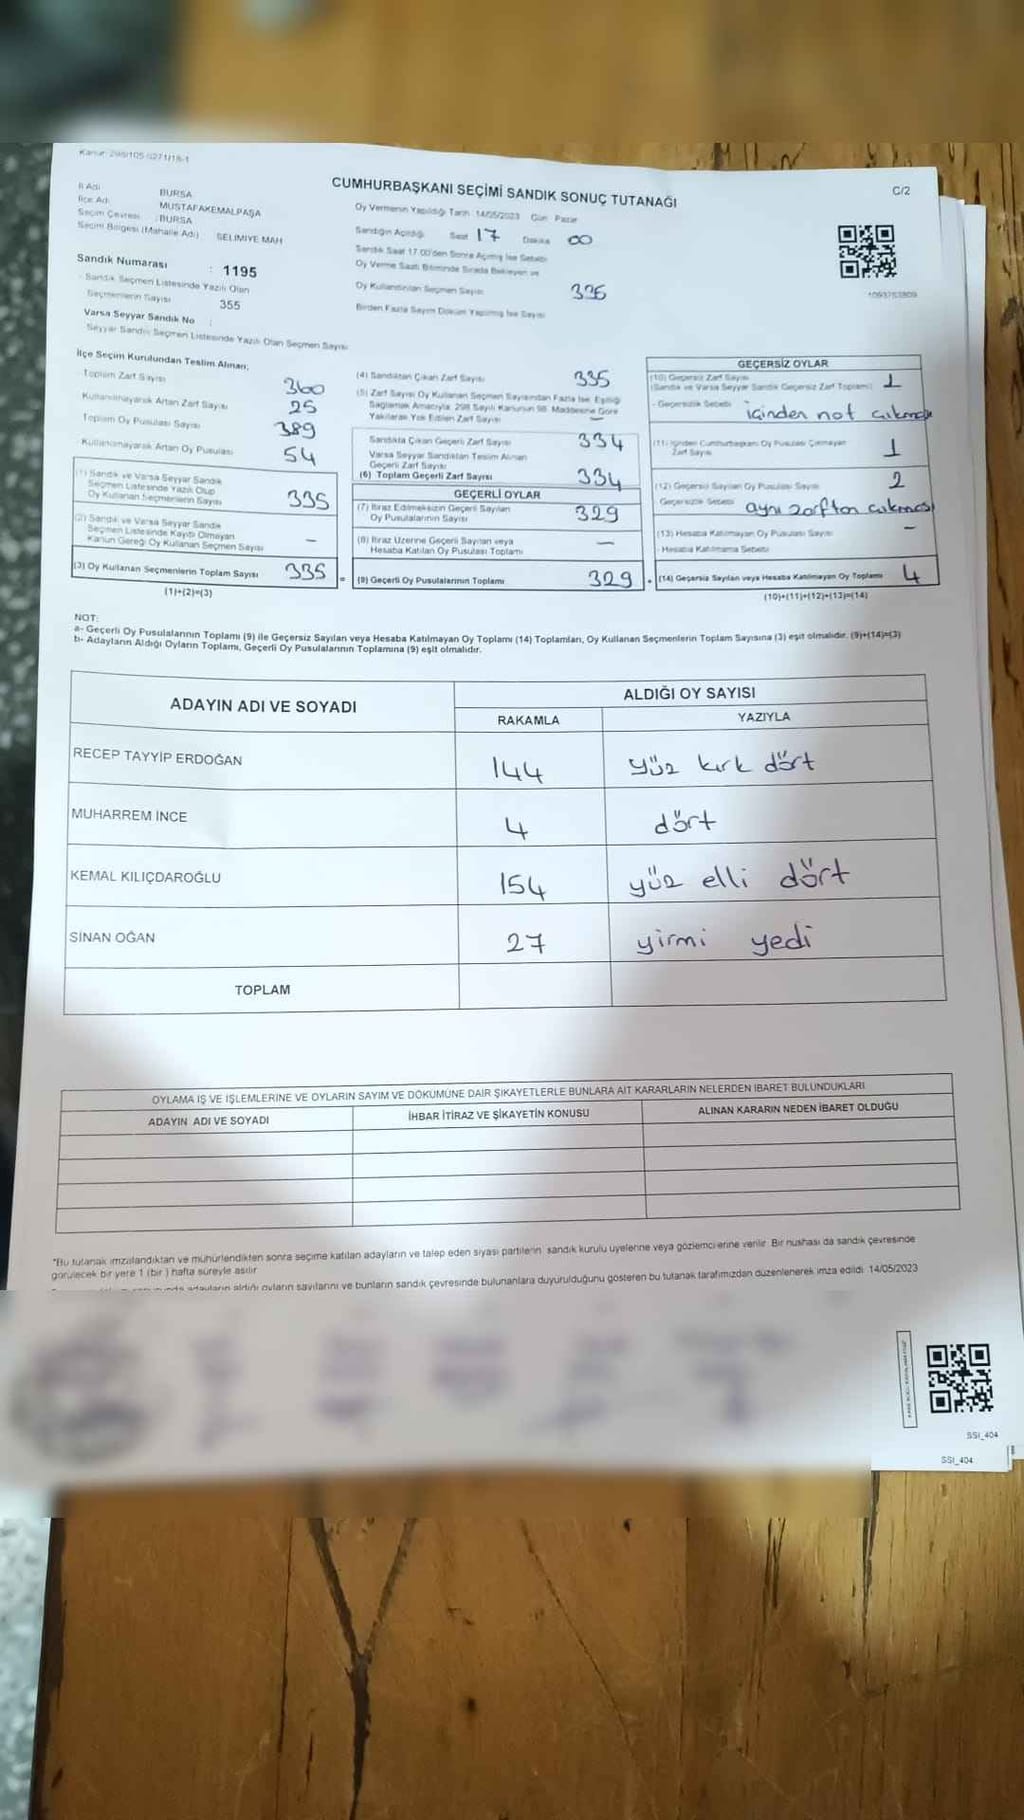 Kanun: 298/105-6271/18-1
C/2
CUMHURBAŞKANI SEÇİMİ SANDIK SONUÇ TUTANAĞI
İl Adı BURSA
İlçe Adı MUSTAFAKEMALPAŞA
Seçim Çevresi : BURSA
Seçim Bölgesi (Mahalle Adı) SELİMİYE MAH
Sandık Numarası : 1195
Sandık Seçmen Listesinde Yazılı Olan
Seçmenlerin Sayısı 355
Varsa Seyyar Sandık No :
Seyyar Sandık Seçmen Listesinde Yazılı Olan Seçmen Sayısı
Oy Vermenin Yapıldığı Tarih 14/05/2023 Gün Pazar
Sandığın Açıldığı Saat 17 Dakika 00
Sandık Saat 17.00'den Sonra Açılmış İse Sebebi
Oy Verme Saati Bitiminde Sırada Bekleyen ve
Oy Kullandırılan Seçmen Sayısı
Birden Fazla Sayım Döküm Yapılmış İse Sayısı
İlçe Seçim Kurulundan Teslim Alınan;
Toplam Zarf Sayısı 360
Kullanılmayarak Artan Zarf Sayısı 25
Toplam Oy Pusulası Sayısı 389
Kullanılmayarak Artan Oy Pusulası 54
(1) Sandık ve Varsa Seyyar Sandık
Seçmen Listesinde Yazılı Olup
Oy Kullanan Seçmenlerin Sayısı 335
(2) Sandık ve Varsa Seyyar Sandık
Seçmen Listesinde Kayıtlı Olmayan
Kanun Gereği Oy Kullanan Seçmen Sayısı –
(3) Oy Kullanan Seçmenlerin Toplam Sayısı 335
(1)+(2)=(3)
(4) Sandıktan Çıkan Zarf Sayısı 335
(5) Zarf Sayısı Oy Kullanan Seçmen Sayısından Fazla İse, Eşitliği
Sağlamak Amacıyla, 298 Sayılı Kanunun 98. Maddesine Göre
Yakılarak Yok Edilen Zarf Sayısı –
Sandıkta Çıkan Geçerli Zarf Sayısı 334
Varsa Seyyar Sandıktan Teslim Alınan
Geçerli Zarf Sayısı
(6) Toplam Geçerli Zarf Sayısı 334
GEÇERLİ OYLAR
(7) İtiraz Edilmeksizin Geçerli Sayılan
Oy Pusulalarının Sayısı 329
(8) İtiraz Üzerine Geçerli Sayılan veya
Hesaba Katılan Oy Pusulası Toplamı –
(9) Geçerli Oy Pusulalarının Toplamı 329
GEÇERSİZ OYLAR
(10) Geçersiz Zarf Sayısı
(Sandık ve Varsa Seyyar Sandık Geçersiz Zarf Toplamı) 1
- Geçersizlik Sebebi içinden not çıkması
(11) İçinden Cumhurbaşkanı Oy Pusulası Çıkmayan
Zarf Sayısı 1
(12) Geçersiz Sayılan Oy Pusulası Sayısı 2
Geçersizlik Sebebi aynı zarftan çıkması
(13) Hesaba Katılmayan Oy Pusulası Sayısı –
- Hesaba Katılmama Sebebi
(14) Geçersiz Sayılan veya Hesaba Katılmayan Oy Toplamı 4
(10)+(11)+(12)+(13)=(14)
NOT:
a- Geçerli Oy Pusulalarının Toplamı (9) ile Geçersiz Sayılan veya Hesaba Katılmayan Oy Toplamı (14) Toplamları, Oy Kullanan Seçmenlerin Toplam Sayısına (3) eşit olmalıdır. (9)+(14)=(3)
b- Adayların Aldığı Oyların Toplamı, Geçerli Oy Pusulalarının Toplamına (9) eşit olmalıdır.
ADAYIN ADI VE SOYADI
ALDIĞI OY SAYISI
RAKAMLA YAZIYLA
RECEP TAYYİP ERDOĞAN 144 yüz kırk dört
MUHARREM İNCE 4 dört
KEMAL KILIÇDAROĞLU 154 yüz elli dört
SİNAN OĞAN 27 yirmi yedi
TOPLAM
OYLAMA İŞ VE İŞLEMLERİNE VE OYLARIN SAYIM VE DÖKÜMÜNE DAİR ŞİKAYETLERLE BUNLARA AİT KARARLARIN NELERDEN İBARET BULUNDUKLARI
ADAYIN ADI VE SOYADI İHBAR İTİRAZ VE ŞİKAYETİN KONUSU ALINAN KARARIN NEDEN İBARET OLDUĞU
*Bu tutanak imzalandıktan ve mühürlendikten sonra seçime katılan adayların ve talep eden siyasi partilerin sandık kurulu üyelerine veya gözlemcilerine verilir. Bir nüshası da sandık çevresinde
görülecek bir yere 1 (bir) hafta süreyle asılır
adayların aldığı oyların sayılarını ve bunların sandık çevresinde bulunanlara duyurulduğunu gösteren bu tutanak tarafımızdan düzenlenerek imza edildi. 14/05/2023
SSI_404
SSI_404